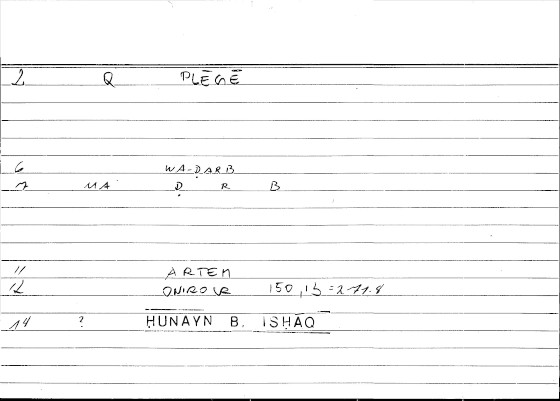 2 Q PLĒGĒ
6 WA-ḌARB
7 MA Ḍ R B
11 ARTEM
12 ONIROCR 150,15=271.8
14 ? HUNAYN B. ISHĀQ